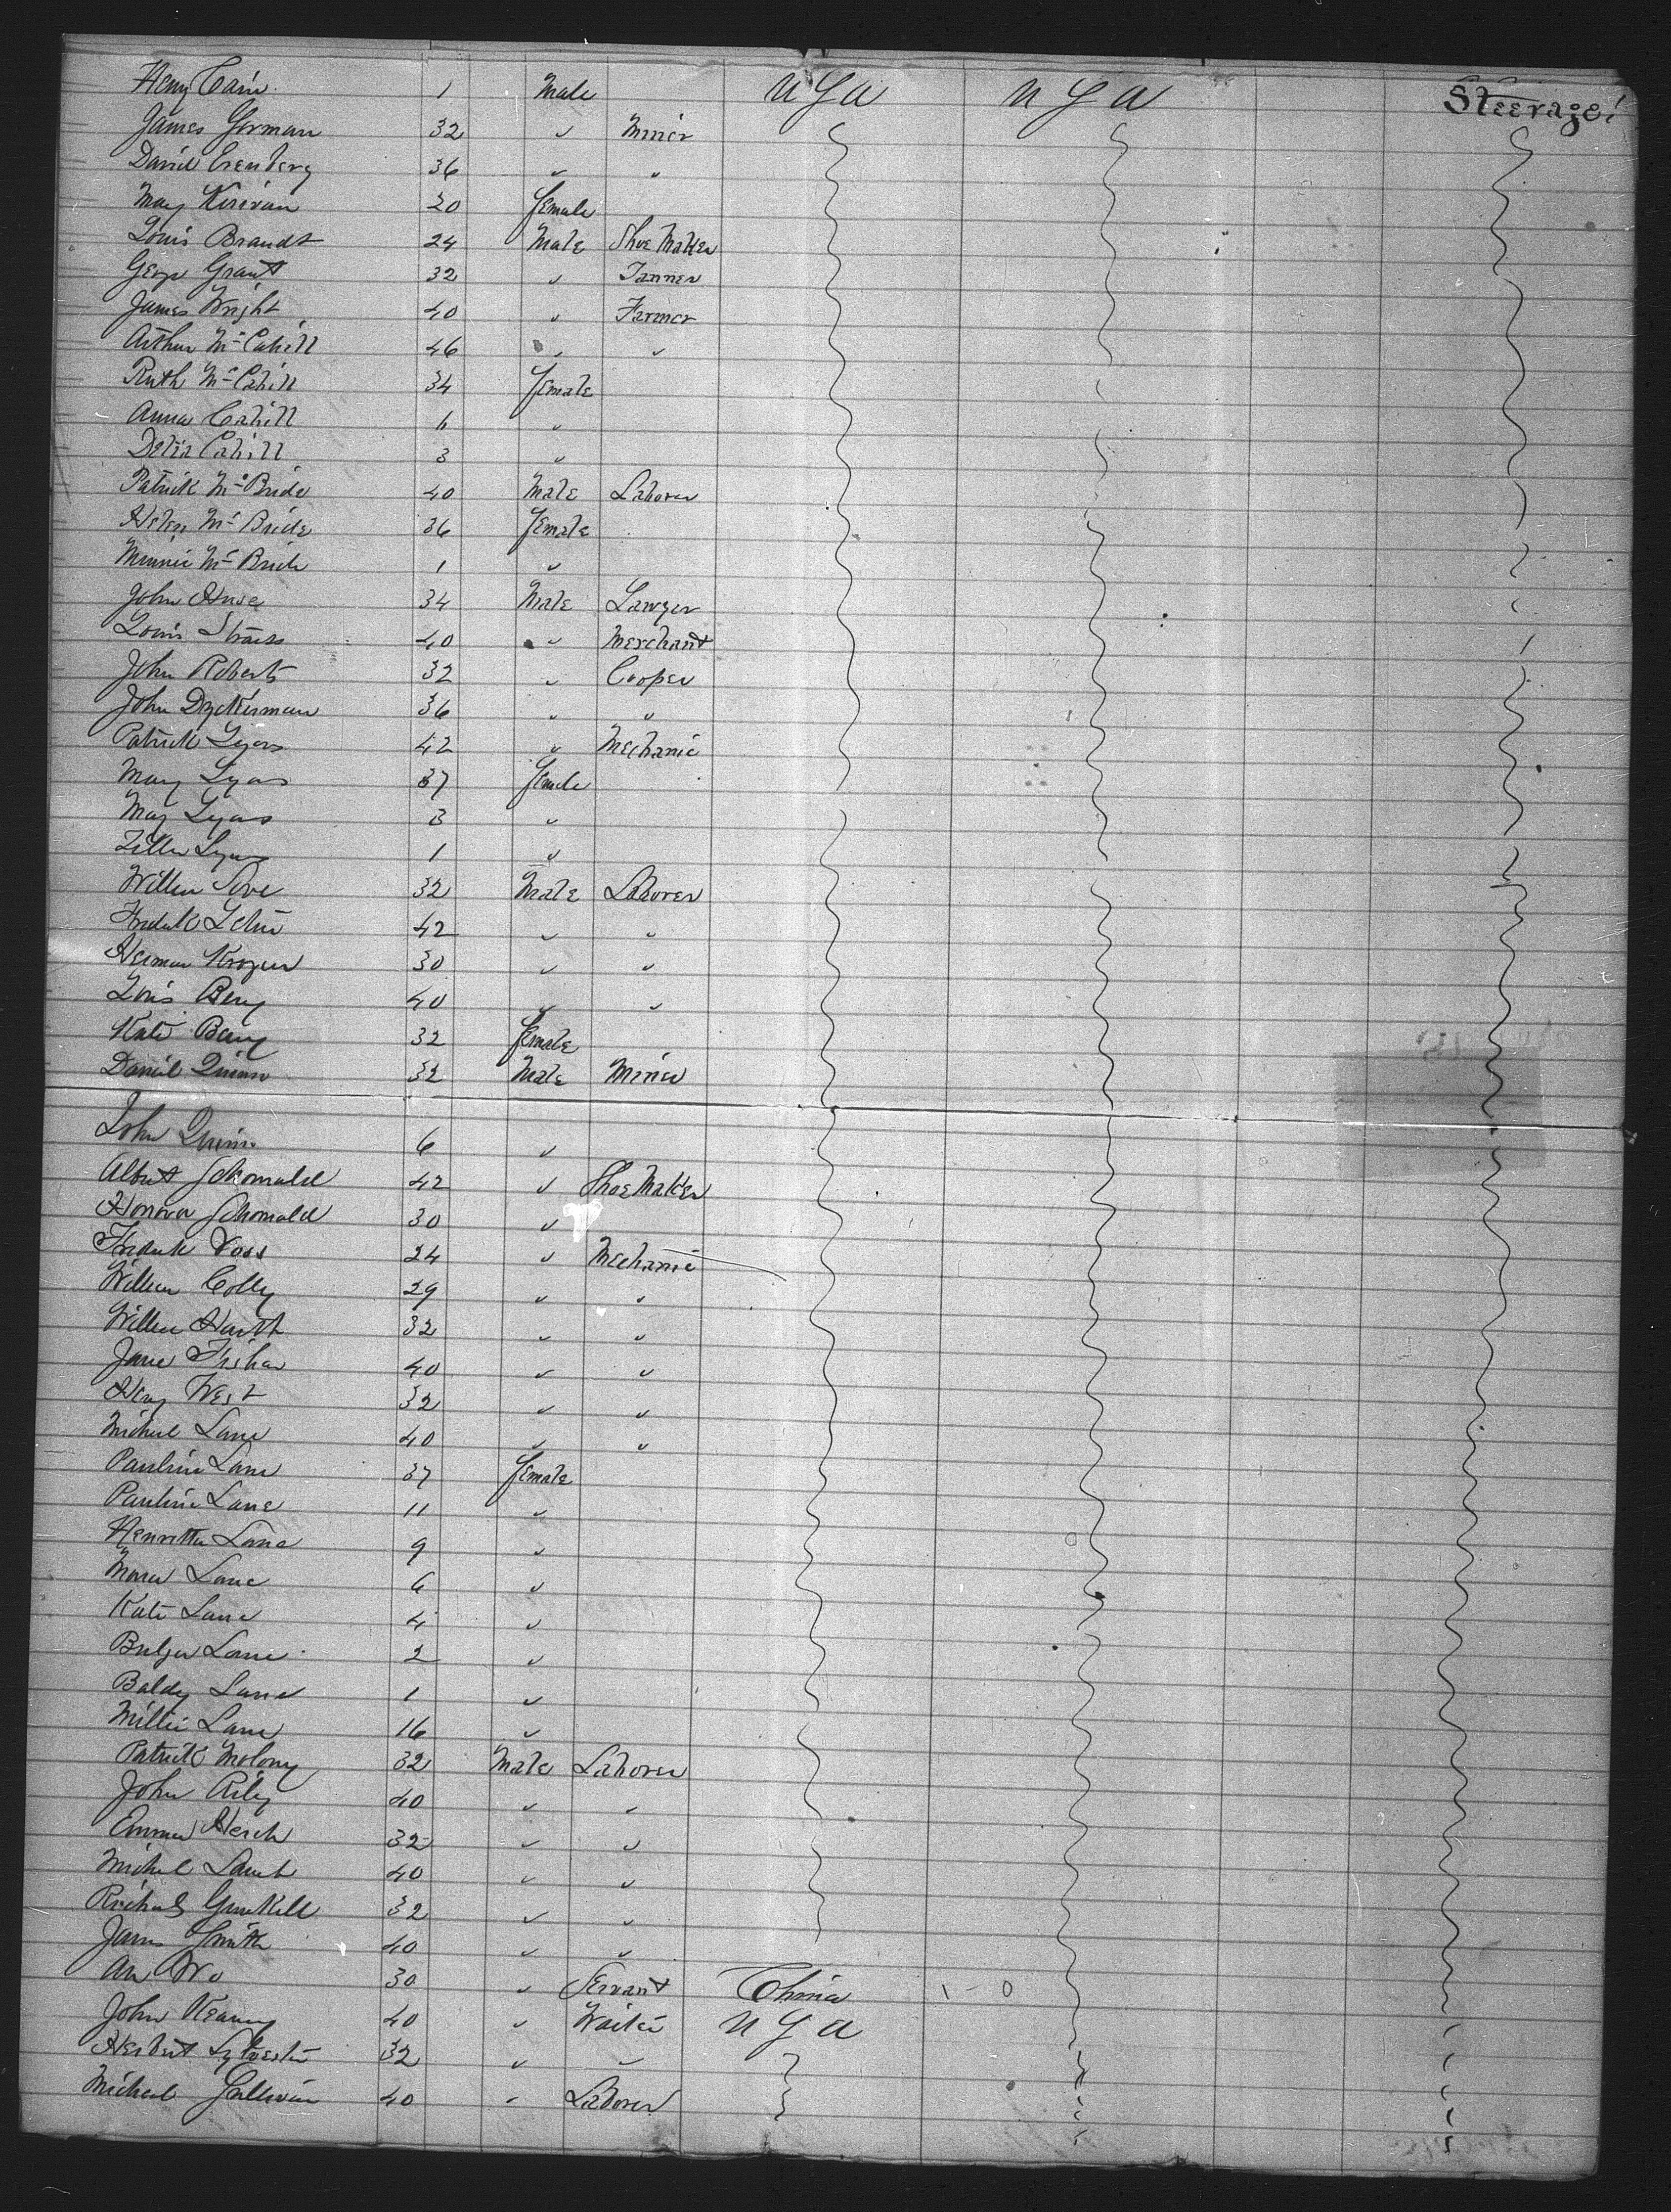 Henry Cain 1 Male U S A U S A Steerage
James Gorman 32 " Miner
David Erenberg 36 " "
May Kirivan 20 Female
Louis Brandt 24 Male Shoe Maker
George Grant 32 " Tanner
James Wright 40 " Farmer
Arthur McCahill 46 " "
Ruth McCahill 34 Female
Anna Cahill 6 "
Delia Cahill 3 "
Patrick McBride 40 Male Laborer
Helen McBride 36 Female
Minnie McBride 1 "
John 34 Male Lawyer
Louis Strauss 40 " Merchant
John Roberts 32 " Cooper
John Dyckerman 36 " "
Patrick Lyons 42 " Mechanic
Mary Lyons 37 Female
May Lyons 3 "
Lyons 1 "
32 Male Laborer
42 " "
Herman 30 " "
Louis 40 " "
Kate 32 Female
Daniel Quinn 32 Male Miner
John Quinn 6 "
Albert Schomald 42 " Shoe Maker
Honora Schomald 30 "
Voss 24 " Mechanic
William Colly 29 " "
32 " "
Jane 40 " "
Henry West 32 " "
Michael Lane 40 " "
Pauline Lane 37 Female
Pauline Lane 11 "
Henrietta Lane 9 "
Lane 6 "
Kate Lane 4 "
Lane 2 "
Baldy Lane 1 "
Millie Lane 16 "
Patrick Molony 32 Male Laborer
John Riley 40 " "
Emma 32 " "
Michael Lamb 40 " "
Richard Gunkell 32 " "
James Smith 40 " "
Ah Wo 30 " Servant China
John Kearny 40 " Waiter U S A
Herbert Sylvester 32 " "
Michael Sullivan 40 " Laborer